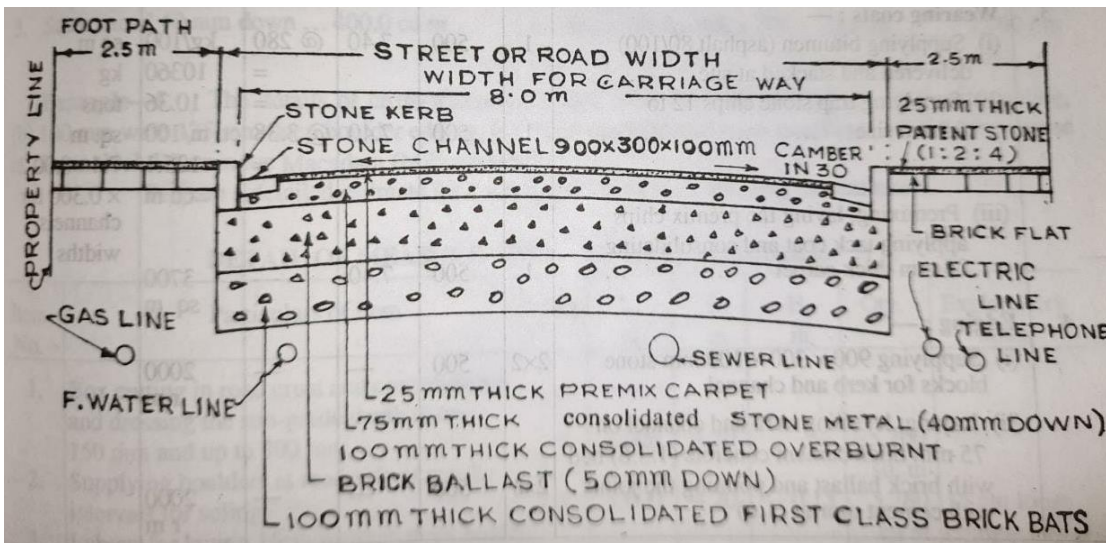 FOOT PATH
2.5m
STREET OR ROAD WIDTH
2.5m
WIDTH FOR CARRIAGE WAY
8.0m
PROPERTY LINE
STONE KERB
25mm THICK
PATENT STONE
(1:2:4)
STONE CHANNEL 900x300x100mm
CAMBER
IN 30
BRICK FLAT
ELECTRIC
LINE
TELEPHONE
LINE
GAS LINE
SEWER LINE
F. WATER LINE
25mm THICK PREMIX CARPET
75mm THICK consolidated STONE METAL (40mm DOWN)
100mm THICK CONSOLIDATED OVERBURNT
BRICK BALLAST (50mm DOWN)
100mm THICK CONSOLIDATED FIRST CLASS BRICK BATS